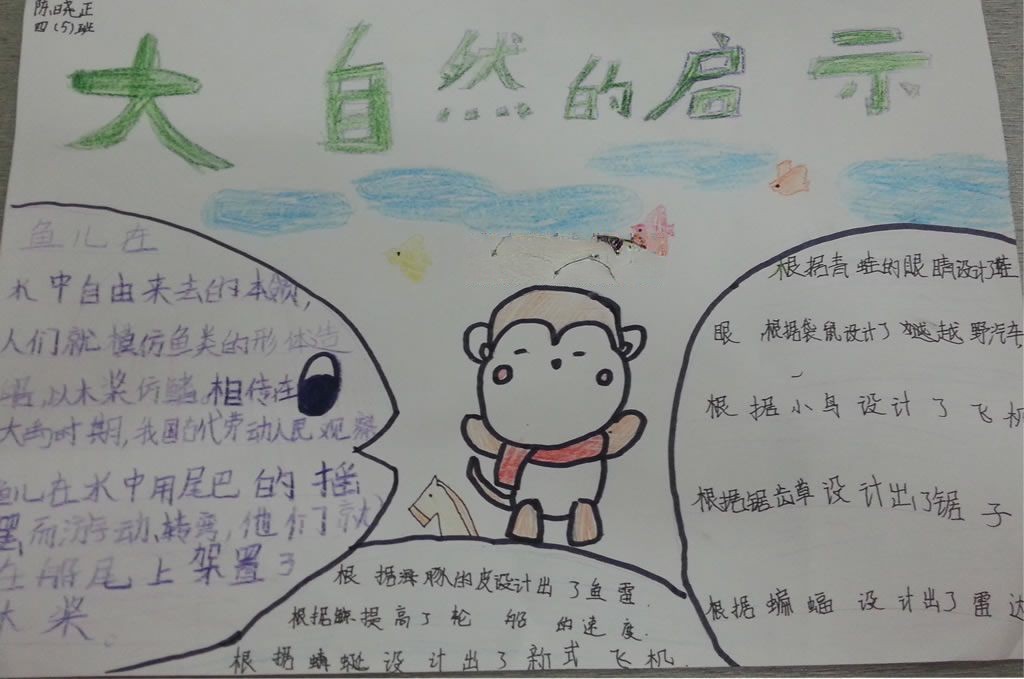 陈晓正
四(5)班
大自然的启示
鱼儿在
水中自由来去的本领,
人们就模仿鱼类的形体造
船,以木桨仿鳍。相传在
大禹时期,我国古代劳动人民观察
鱼儿在水中用尾巴的摇
而游动、转弯,他们就
在船尾上架置了
木桨。
根据海豚的皮设计出了鱼雷.
根据 提高了轮船的速度.
根据蜻蜓设计出了新式飞机.
根据青蛙的眼睛设计了蛙
眼 根据袋鼠设计了越野汽车,
根据小鸟设计了飞机
根据锯齿草设计出了锯子
根据蝙蝠设计出了雷达